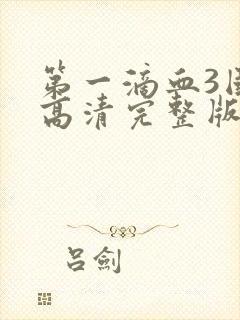 第一滴血3国
高清完整版
吕劍